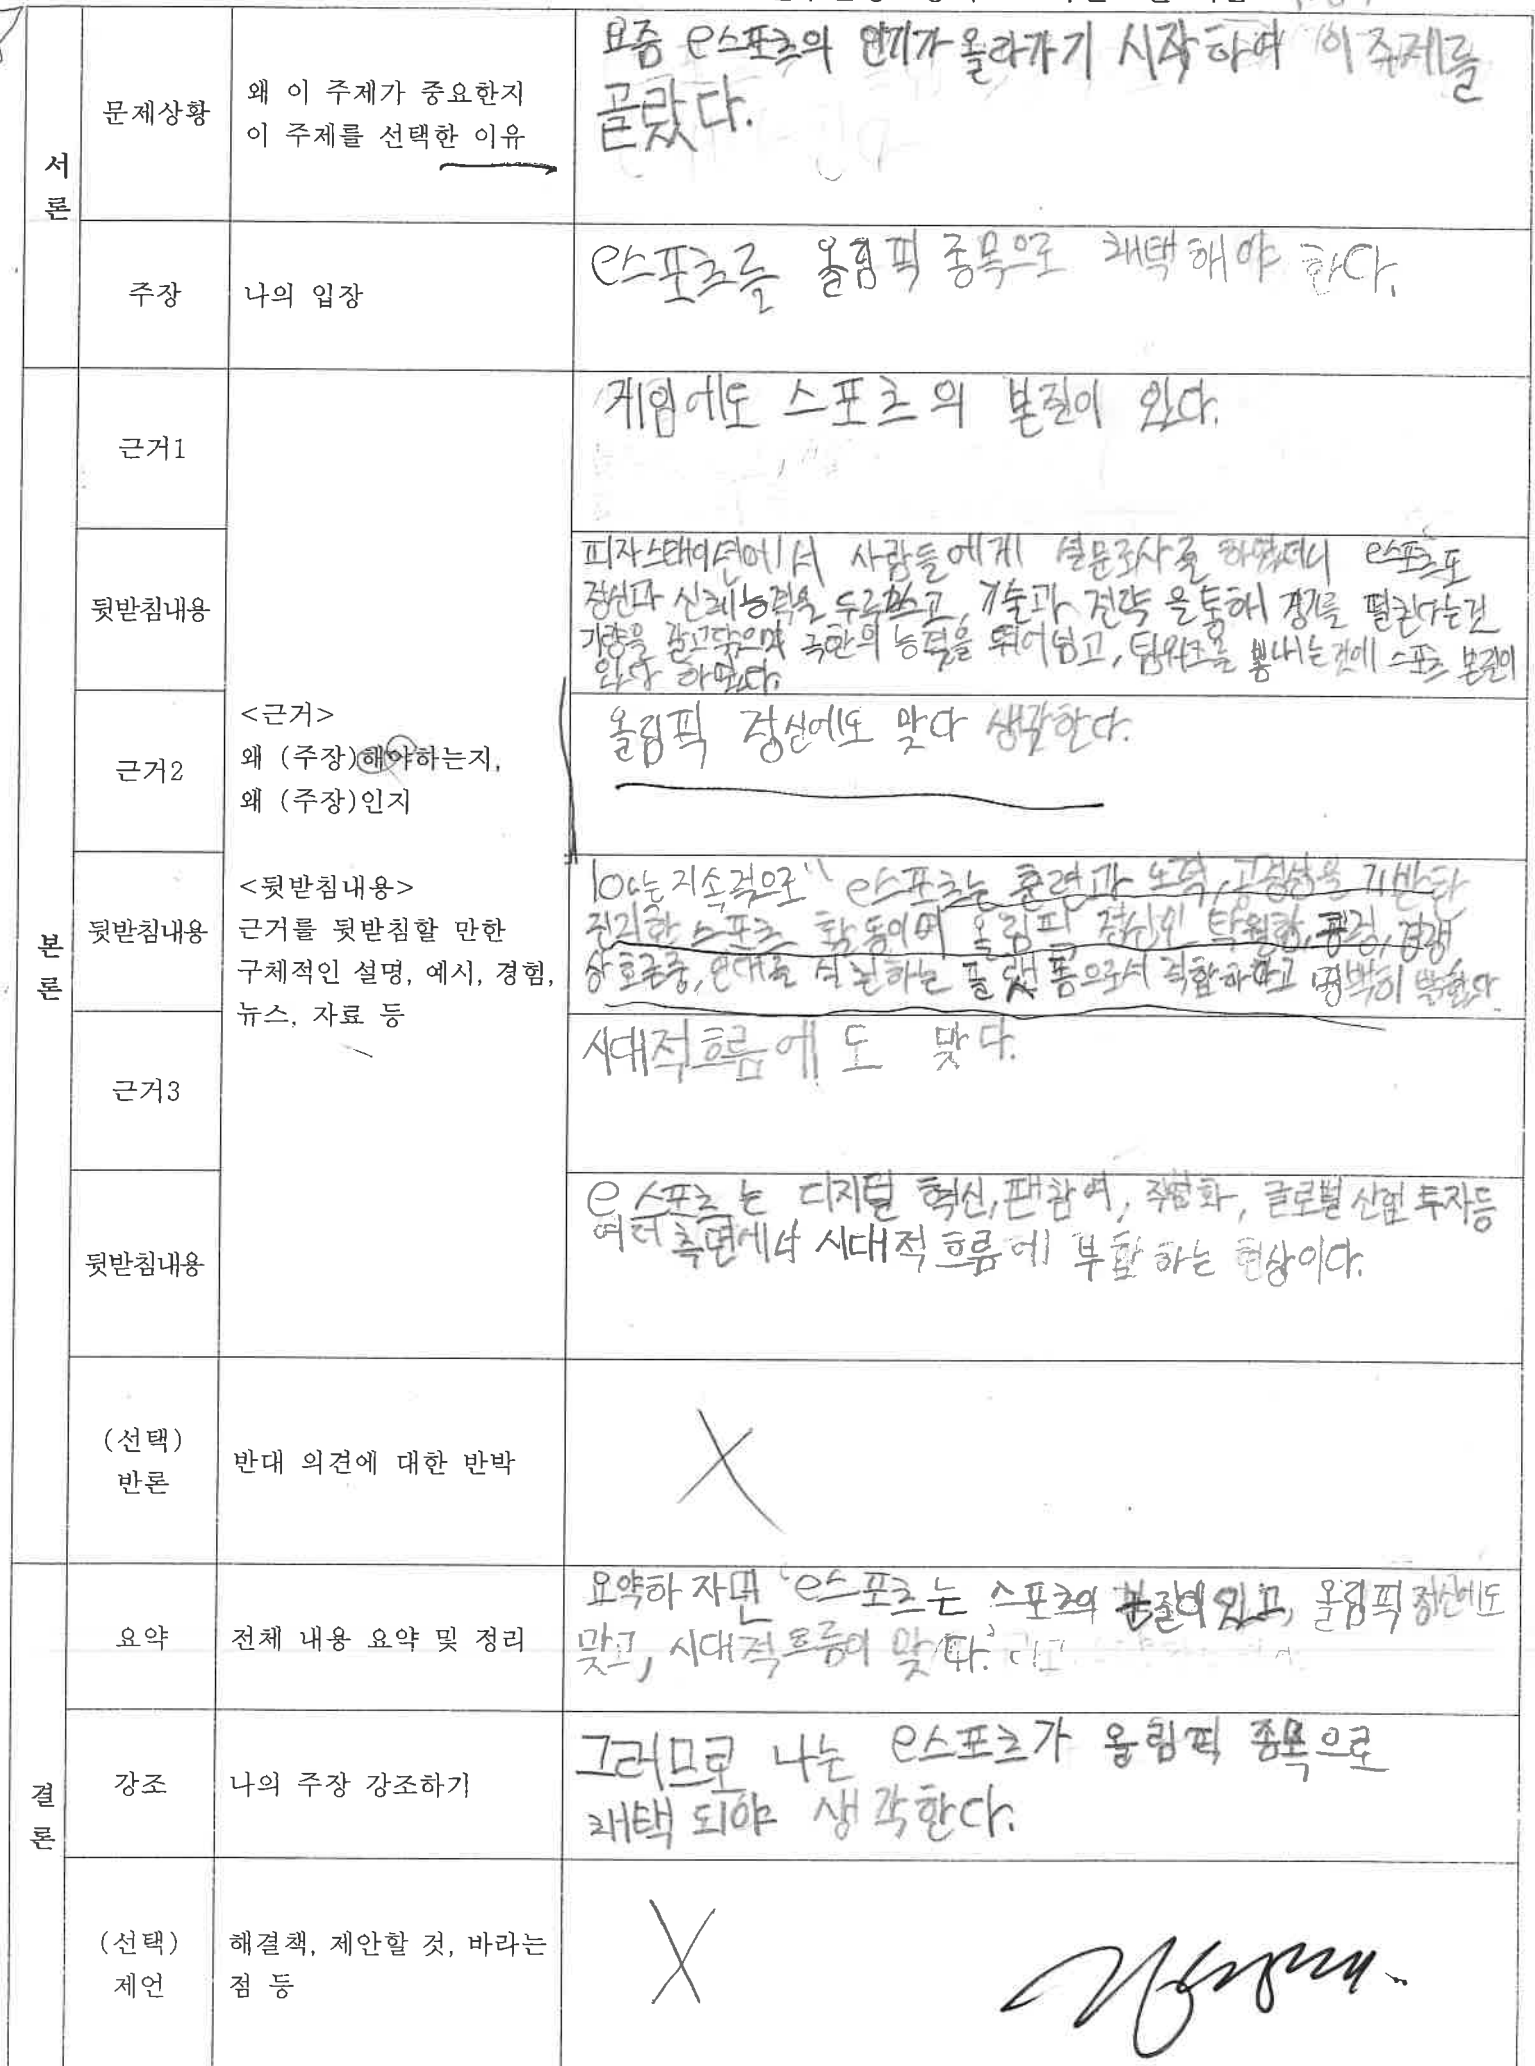 서론
문제상황
왜 이 주제가 중요한지
이 주제를 선택한 이유
요즘 e스포츠의 인기가 올라가기 시작하여 이 주제를
골랐다.
주장
나의 입장
e스포츠를 올림픽 종목으로 채택해야 한다.
본론
근거1
게임에도 스포츠의 본질이 있다.
뒷받침내용
피자스테이션에서 사람들에게 설문조사를 하였더니 e스포츠도
정신과 신체능력을 두루쓰고, 기술과 전략을 통해 경기를 펼친다는건
기량을 갈고닦으며 극한의 능력을 뛰어넘고, 팀워크를 뽐내는것에 스포츠 본질이
있다 하였다.
<근거>
왜 (주장)해야하는지,
왜 (주장)인지
<뒷받침내용>
근거를 뒷받침할 만한
구체적인 설명, 예시, 경험,
뉴스, 자료 등
근거2
올림픽 정신에도 맞다 생각한다.
뒷받침내용
지속적으로 "e스포츠는 훈련과 노력, 공정성을 기반한
진지한 스포츠 활동이며 올림픽 정신인 탁월함, 공정, 경쟁
상호존중, 연대를 실천하는 플랫폼으로서 적합하다고 명백히 밝혔다.
근거3
시대적흐름에도 맞다.
뒷받침내용
e스포츠는 디지털 혁신, 팬참여, 직업화, 글로벌 산업 투자등
여러 측면에서 시대적 흐름에 부합하는 현상이다.
(선택)
반론
반대 의견에 대한 반박
X
결론
요약
전체 내용 요약 및 정리
요약하자면 'e스포츠는 스포츠의 본질이 있고, 올림픽 정신에도
맞고, 시대적흐름이 맞다.'
강조
나의 주장 강조하기
그러므로 나는 e스포츠가 올림픽 종목으로
채택 되야 생각한다.
(선택)
제언
해결책, 제안할 것, 바라는
점 등
X